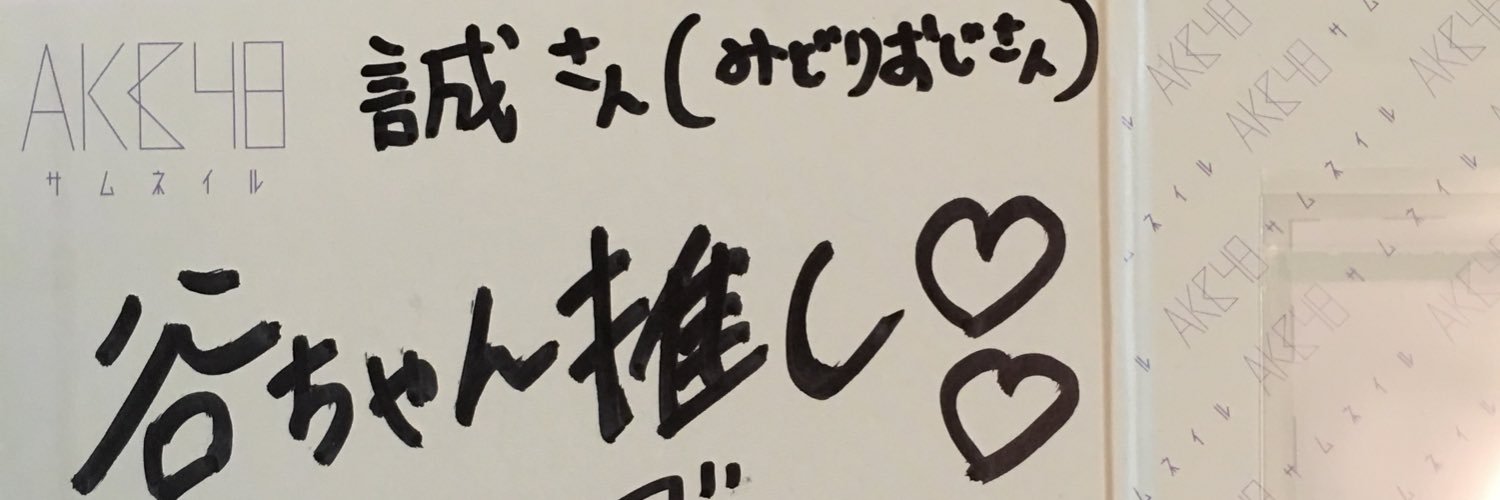 AKB48
サムネイル
誠さん(みどりおじさん)
谷ちゃん推し♡
♡
AKB48
サムネイル
AKB48
サムネイル
AKB48
AKB48
サムネイル
AKB48
サムネイル